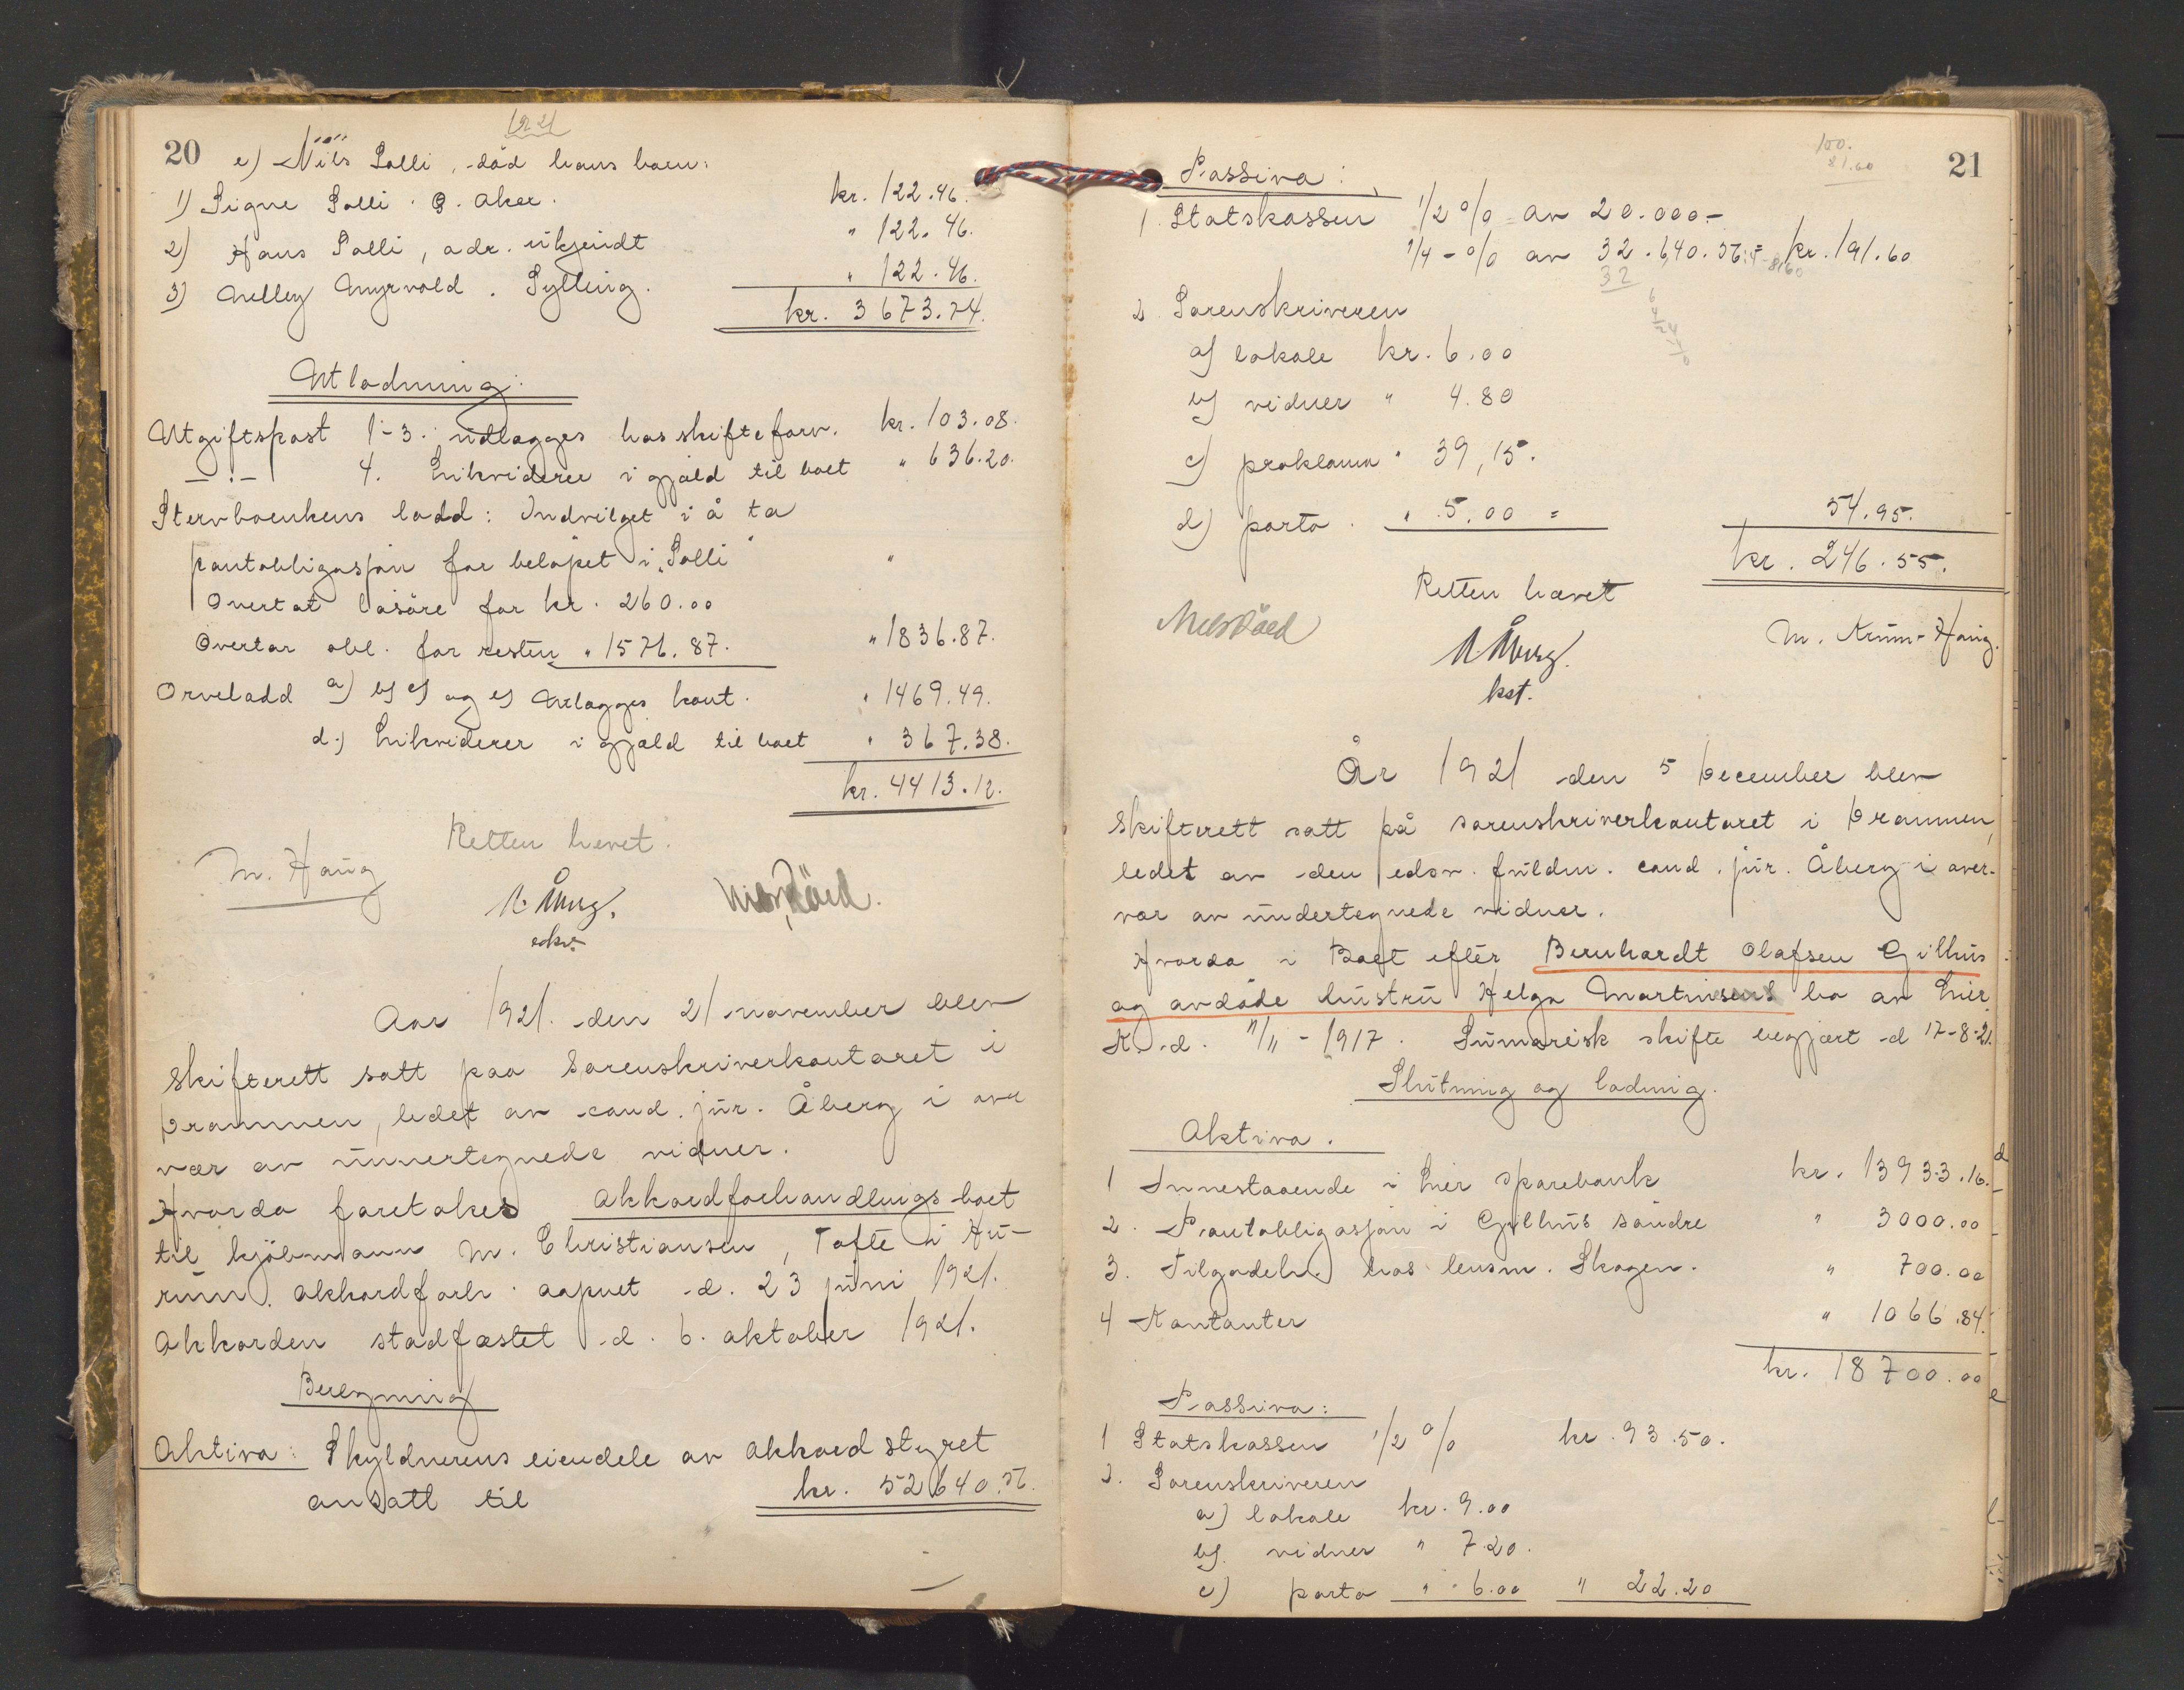 1921
20 e) Nils Solli, död hans barn:
1) Signe Solli. Ø. Aker. kr. 122.46.
2) Hans Solli, adr. ukjendt " 122.46.
3) Nelley Myrvold. Sylling. " 122.46.
kr. 3673.74.
Utlodning.
Utgiftspost 1-3. utlægges hos skifteforv. kr. 103.08.
—"— 4. Likviderer i gjæld til boet " 636.20.
Stervboenkens lodd: Indvilget i å ta
pantobligasjon for belöpet i "Solli" "
Overtat lösöre for kr. 260.00
Overtar obl. for resten " 1576.87. " 1836.87.
Arvelodd a) b) c) og e) utlægges kont. " 1469.49.
d) Likviderer i gjæld til boet " 367.38.
kr. 4413.12.
Retten hevet.
M. Haug N. Åberg. Nils
Aar 1921. den 21 november blev
skifterett satt paa sorenskriverkontoret i
Drammen, ledet av cand. jur. Åberg i over
vær av unnertegnede vidner.
Hvorda foretokes akkordforhandlings boet
til kjöbmann M. Christiansen, Tofte i Hu-
rum. Akkordforh. aapnet d. 23 juni 1921.
Akkorden stadfæstet d. 6. oktober 1921.
Beregning
Aktiva: Skyldnerens eiendele av akkordstyret
ansatt til kr. 52640.56.
100.
81.60
21
Passiva:
1. Statskassen 1/2 % av 20.000.-
1/4 - % av 32.640.56 = kr. 191.60
32
2. Sorenskriveren
a) lokale kr. 6.00
b) vidner " 4.80
c) proklama " 39,15.
d) porto. " 5.00 = 54.95.
kr. 246.55.
Retten hævet
Nils N. Åberg. M. Krum-Haug.
kst.
År 1921 den 5 December blev
skifterett satt på sorenskriverkontoret i Drammen,
ledet av den edsv. fuldm. cand. jur. Åberg i over-
vær av undertegnede vidner.
Hvorda i Boet efter Bernhardt Olafsen Gilhus
og avdöde hustru Helga Martinsens bo av Lier
K. d. 11/11 - 1917. Sumarisk skifte begjært d 17-8-21.
Slutning og lodning.
Aktiva.
1 Innestaaende i Lier sparebank kr. 13933.16.
2. Pantobligasjon i Gilhus söndre " 3000.00
3. Tilgodeh. hos lensm. Skogen. " 700.00
4 Kontanter " 1066.84.
kr. 18700.00
Passiva:
1 Statskassen 1/2 % kr. 93.50.
2. Sorenskriveren
a) lokale kr. 9.00
b) vidner " 7.20.
c) porto " 6.00 " 22.20